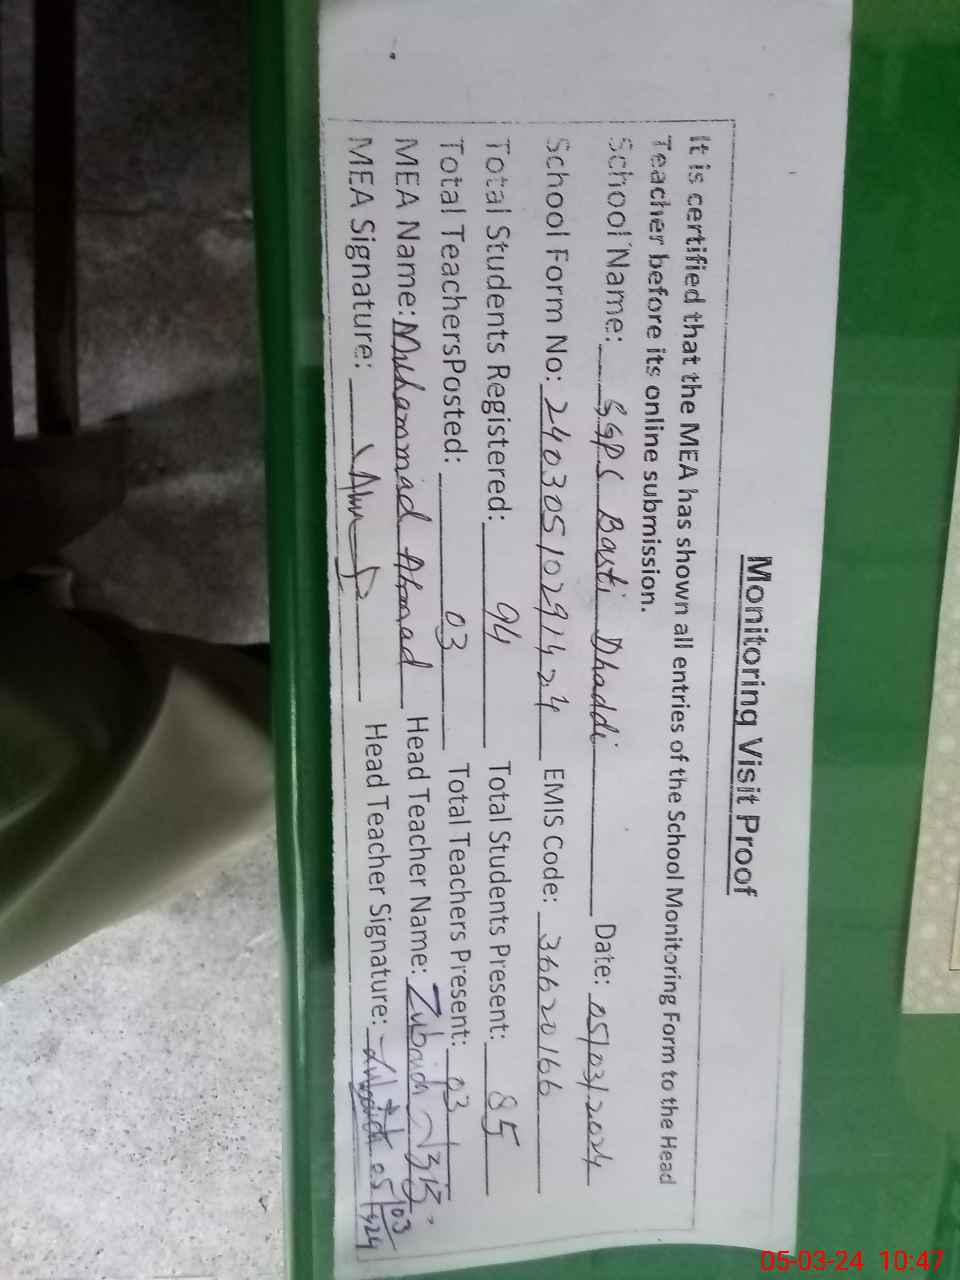 Monitoring Visit Proof
It is certified that the MEA has shown all entries of the School Monitoring Form to the Head
Teacher before its online submission.
School Name: GGPS Basti Dhaddi Date: 05/03/2024
School Form No: 24030510291424 EMIS Code: 36620166
Total Students Registered: 94 Total Students Present: 85
Total TeachersPosted: 03 Total Teachers Present: 03
MEA Name: Muhammad Ahmad Head Teacher Name: Zubaida
MEA Signature: Head Teacher Signature: Zubaida 05/03/24
05-03-24 10:47